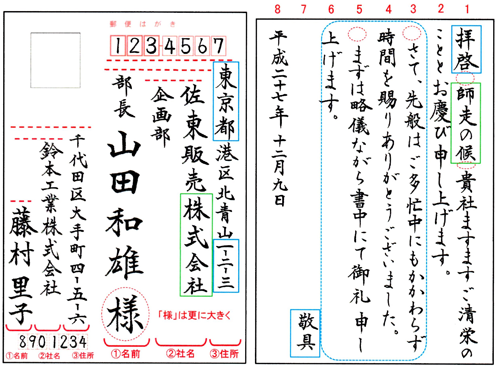 郵便はがき
1234567
東京都港区北青山一-二-三
佐東販売株式会社
企画部
部長 山田和雄 様
「様」は更に大きく
①名前 ②社名 ③住所
千代田区大手町四-五-六
鈴本工業株式会社
藤村里子
8901234
①名前 ②社名 ③住所
8 7 6 5 4 3 2 1
拝啓 師走の候 貴社ますますご清栄の
こととお慶び申し上げます。
さて、先般はご多忙中にもかかわらず
時間を賜りありがとうございました。
まずは略儀ながら書中にて御礼申し
上げます。
敬具
平成二十七年 十二月九日